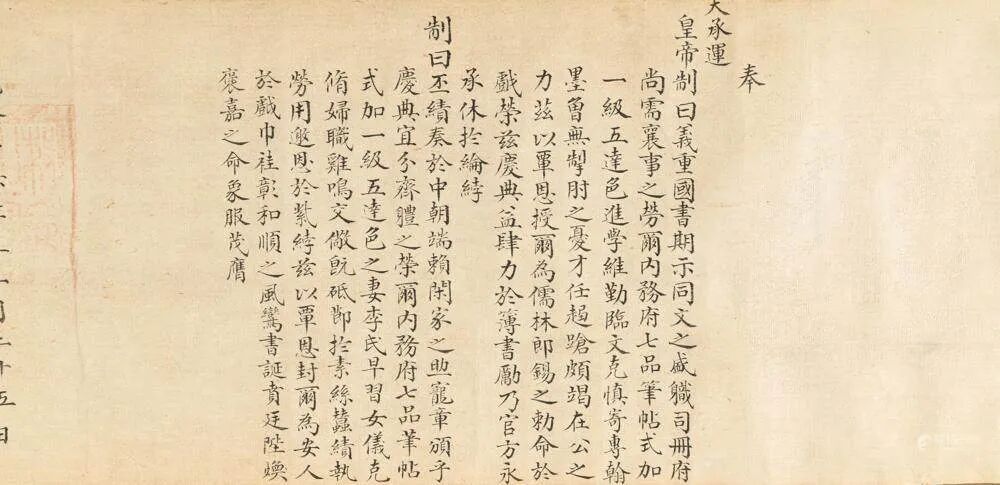 奉
天承運
皇帝制曰義重國書期示同文之盛職司冊府
尚需襄事之勞爾內務府七品筆帖式加
一級五達色進學維勤臨文克慎寄專翰
墨魯無掣肘之憂才任趨蹌頗竭在公之
力茲以覃恩授爾為儒林郎錫之勅命於
戲榮茲慶典益肆力於簿書勵乃官方永
承休於綸綍
制曰丕績奏於中朝端賴閑家之助寵章頒乎
慶典宜分齊體之榮爾內務府七品筆帖
式加一級五達色之妻李氏早習女儀克
脩婦職雞鳴交儆既砥節於素絲蠶績執
勞用邀恩於紫綍茲以覃恩封爾為安人
於戲巾袿彰和順之風鸞書誕賁廷陛煥
褒嘉之命象服茂膺
二十五日